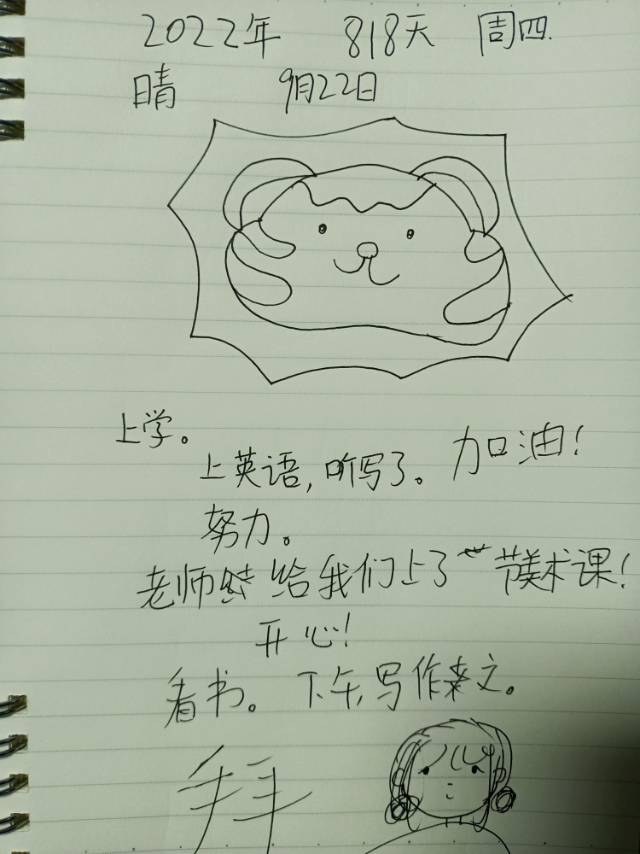 2022年 818天 周四.
晴 9月22日
上学。
上英语,听写了。加油!
努力。
老师 给我们上了一节美术课!
开心!
看书。下午,写作文。
拜